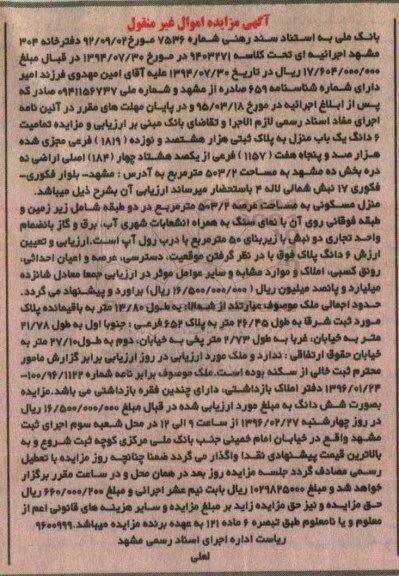 آگهی مزایده اموال غیر منقول
بانک ملی به استناد سند رهنی شماره ۷۵۳۶ مورخ ۹۲/۰۹/۰۲ دفترخانه ۳۰۴
مشهد اجرائیه ای تحت کلاسه ۹۴۰۳۲۷۱ در مورخ ۱۳۹۴/۰۷/۳۰ در قبال مبلغ
۱۷/۶۰۴/۰۰۰/۰۰۰ ریال در تاریخ ۱۳۹۴/۰۷/۳۰ علیه آقای امین مهدوی فرزند امیر
دارای شماره شناسنامه ۶۵۹ صادره از مشهد و شماره ملی ۰۹۴۱۱۵۶۷۳۷ صادر که
پس از ابلاغ اجرائیه در مورخ ۹۵/۰۳/۱۸ و در پایان مهلت های مقرر در آئین نامه
اجرای مفاد اسناد رسمی لازم الاجرا و تقاضای بانک مبنی بر ارزیابی و مزایده تمامیت
۶ دانگ یک باب منزل به پلاک ثبتی هزار هشتصد و نوزده (۱۸۱۹) فرعی مجزی شده
هزار صد و پنجاه هفت (۱۱۵۷) فرعی از یکصد هشتاد چهار (۱۸۴) اصلی اراضی نه
دره بخش ده مشهد به مساحت ۵۰۳/۲ مترمربع به آدرس : مشهد- بلوار فکوری-
فکوری ۱۷ نبش شمالی لاله ۴ باستحضار میرساند ارزیابی آن بشرح ذیل میباشد.
منزل مسکونی به مساحت عرصه ۵۰۳/۲ مترمربع در دو طبقه شامل زیر زمین و
طبقه فوقانی روی آن با نمای سنگ به همراه انشعابات شهری آب، برق و گاز بانضمام
واحد تجاری دو نبش با زیربنای ۵۰ مترمربع با درب رول آپ است.ارزیابی و تعیین
ارزش ۶ دانگ پلاک فوق با در نظر گرفتن موقعیت، دسترسی، عرصه و اعیان احداثی،
رونق کسبی، املاک و موارد مشابه و سایر عوامل موثر در ارزیابی جمعا معادل شانزده
میلیارد و پانصد میلیون ریال (۱۶/۵۰۰/۰۰۰/۰۰۰ ریال) برآورد و پیشنهاد می گردد.
حدود اجمالی ملک موصوف عبارتند از شمالا: به طول ۱۴/۸۰ متر به باقیمانده پلاک
مورد ثبت شرقا به طول ۲۶/۴۵ متر به پلاک ۶۵۲ فرعی ؛ جنوبا اول به طول ۲۱/۷۸
متر به خیابان، غربا به طول ۲/۷۳ متر پخی به خیابان، دوم به طول ۲۷/۱۰ متر به
خیابان حقوق ارتفاقی : ندارد و ملک مورد ارزیابی در روز ارزیابی برابر گزارش مامور
محترم ثبت خالی از سکنه بوده است.ملک موصوف برابر نامه شماره ۱۰۰/۹۶/۱۱۲۲-
۱۳۹۶/۰۱/۲۴ دفتر املاک بازداشتی، دارای چندین فقره بازداشتی می باشد.مزایده
بصورت شش دانگ به مبلغ مورد ارزیابی شده در قبال مبلغ ۱۶/۵۰۰/۰۰۰/۰۰۰ ریال
در روز چهارشنبه ۱۳۹۶/۰۲/۲۷ از ساعت ۹ الی ۱۲ در محل شعبه سوم اجرای ثبت
مشهد واقع در خیابان امام خمینی جنب بانک ملی مرکزی کوچه ثبت شروع و به
بالاترین قیمت پیشنهادی نقدا واگذار می گردد ضمنا چنانچه روز مزایده با تعطیل
رسمی مصادف گردد جلسه مزایده روز بعد در همان محل و در ساعت مقرر برگزار
خواهد شد و مبلغ ۱۰۲۹۸۲۵۰۰۰ ریال بابت نیم عشر اجرائی و مبلغ ۶۶۰/۰۰۰/۲۰۰ ریال
حق مزایده و نیز حق مزایده زاید بر مبلغ مزایده و سایر هزینه های قانونی اعم از
معلوم و یا نامعلوم طبق تبصره ۶ ماده ۱۲۱ به عهده برنده مزایده میباشد.۹۶۰۰۹۹۹
ریاست اداره اجرای اسناد رسمی مشهد
لعلی